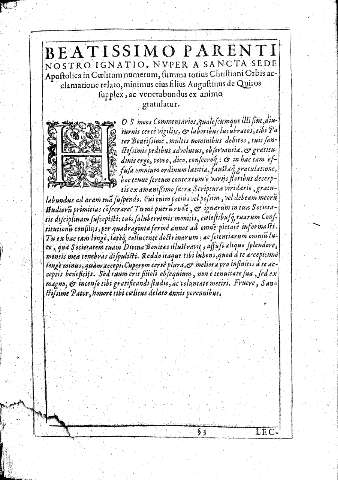 BEATISSIMO PARENTI
NOSTRO IGNATIO, NVPER A SANCTA SEDE
Apostolica in Cælitum numerum, summa totius Christiani Orbis ac-
clamatione relato, minimus eius filius Augustinus de Quiros
supplex, ac venerabundus ex animo
gratulatur.
HOS meos Commentarios, qualescumque illi sint, diu-
turnis certè vigiliis, & laboribus lucubratos, tibi Pa-
ter Beatissime, multis nominibus debitos, tuis san-
ctissimis pedibus advolutus, observantiæ, & gratitu-
dinis ergo, voveo, dico, consecroq; & in hac tam ef-
fusa omnium ordinum lætitia, faustaq; gratulatione,
hoc tenue sertum contextum è variis floribus decerp-
tis ex amœnissimo sacræ Scripturæ viridario, gratu-
labundus ad aram tuā suspendo. Cui enim potiùs vel possim, vel debeam meorū
studiorū primitias
tis disciplinam suscepisti: tuis saluberrimis monitis, cælestibusq; tuarum Consti-
tutionū
Tu ex hac tam longè, latèq; collucente doctrinarum, ac scientiarum omniū lu-
ce, quā Societatem tuam Divina Bonitas illustravit, affuso aliquo splendore,
mentis meæ tenebras dispulisti. Reddo itaque tibi lubens, quod à te accepi: imò
longè minus, quàm accepi. Cuperem certè plura, & meliora pro infinitis à te ac-
ceptis beneficiis. Sed tuum erit filioli obsequium, non è tenuitate sua, sed ex
magno, & incenso tibi gratificandi studio, ac voluntate metiri. Fruere, San-
ctissime Pater, honore tibi cælitus delato annis perennibus.
§§ LEC-